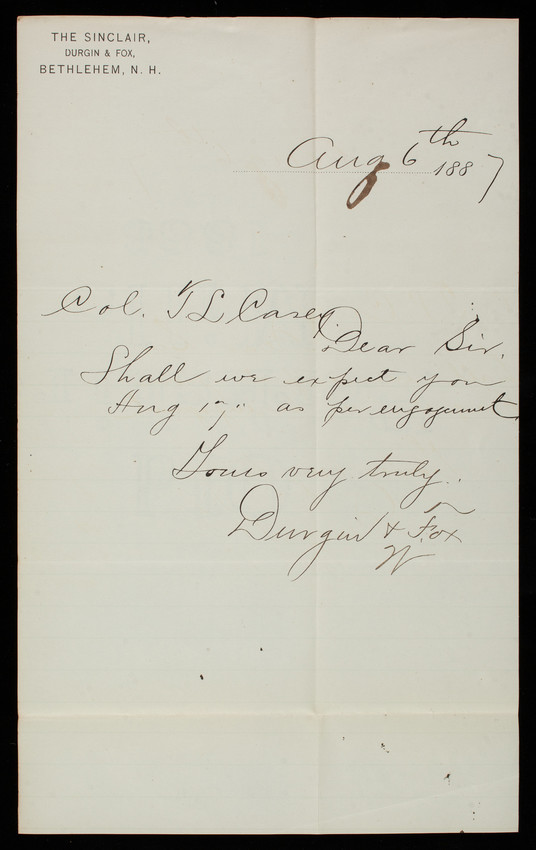 THE SINCLAIR,
DURGIN & FOX,
BETHLEHEM, N. H.
Aug 6th 1887
Col. T L Casey
Dear Sir.
Shall we expect you
Aug 17" as per engagement
Yours very truly.
Durgin & Fox